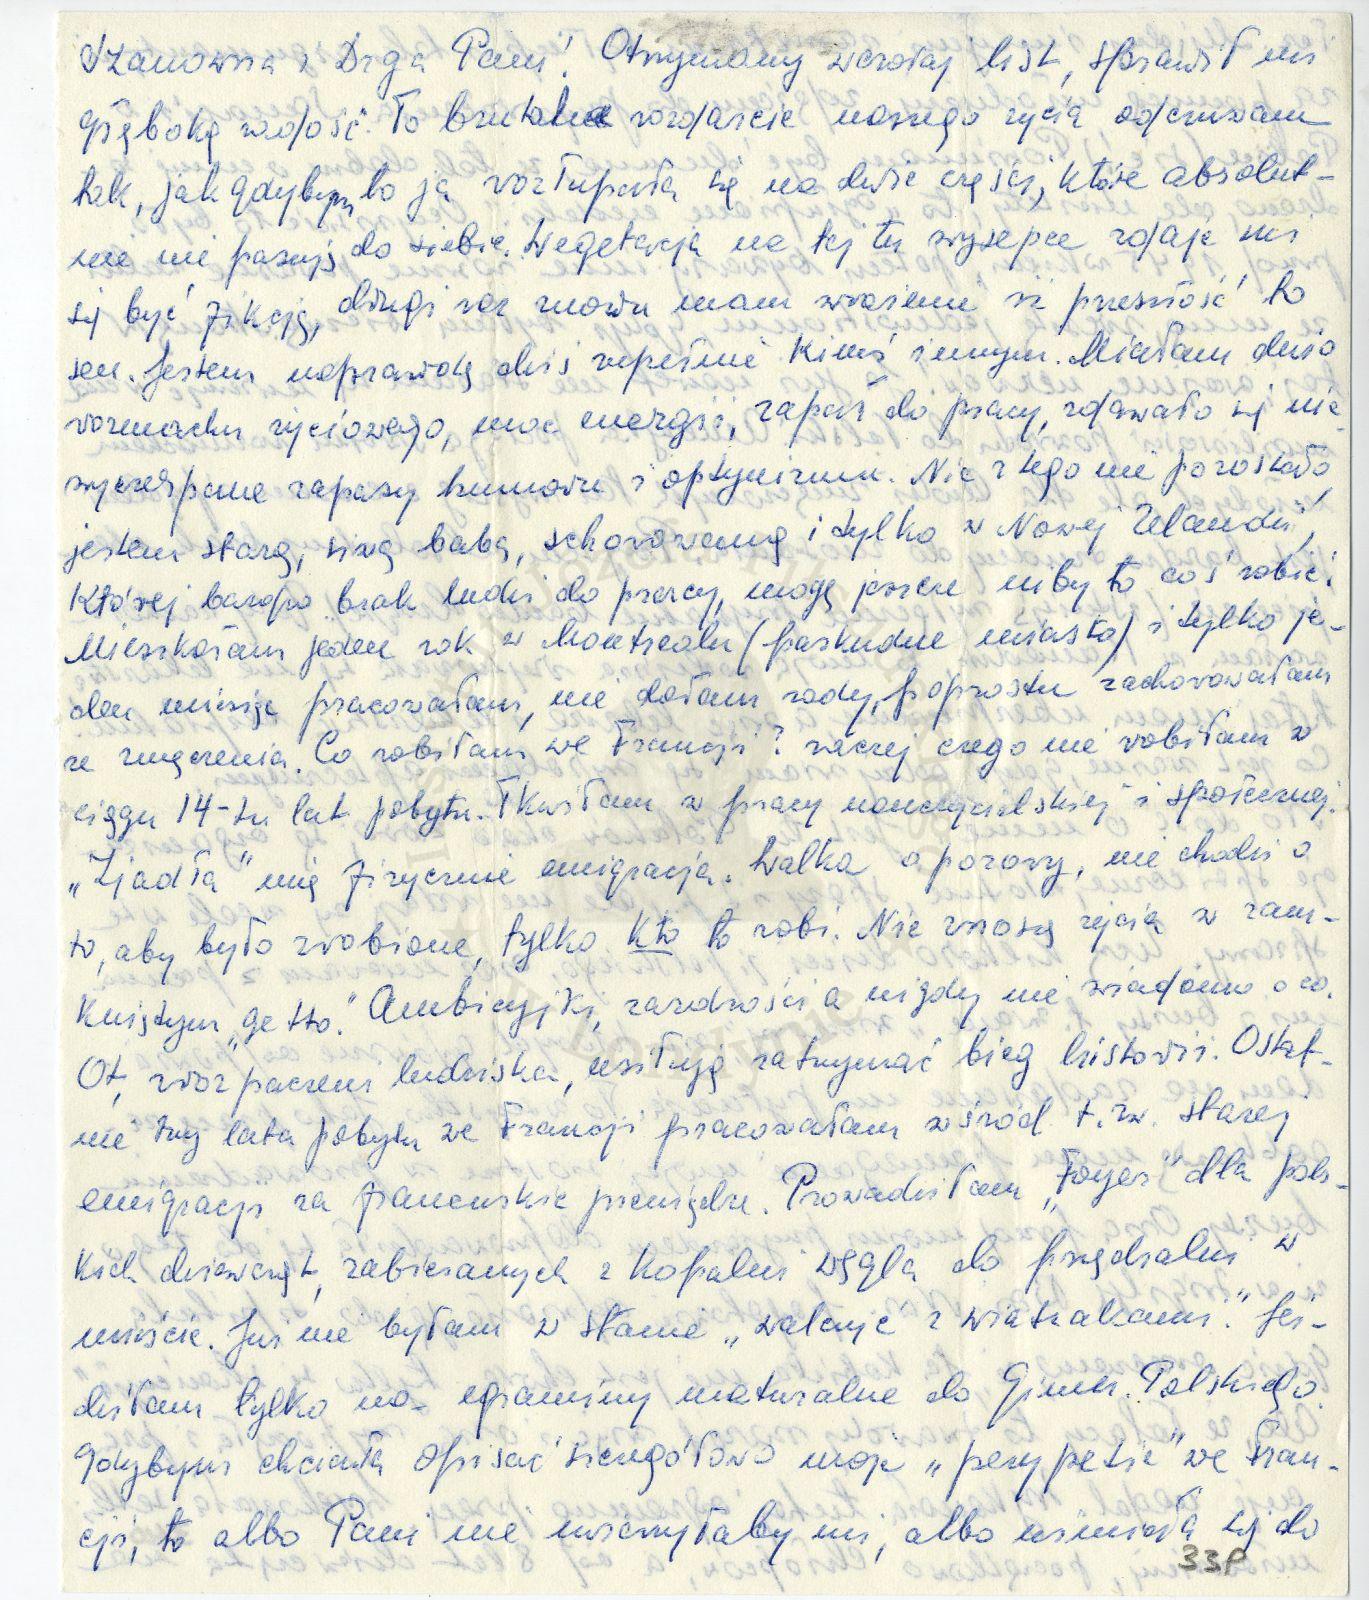 Szanowna i Drga Pani! Otrzymany wczoraj list, sprawił mi
głęboką radość. To brutalne rozdarcie naszego życia odczuwam
tak, jak gdybym to ja rozłupała się na dwie części, które absolut-
nie nie pasują do siebie. Wegetacja na tej tu wysepce zdaje mi
się być fikcją, drugi raz znowu mam wrażenie iż przeszłość to
sen. Jestem naprawdę dziś zupełnie kimś innym. Miałam dużo
rozmachu życiowego, moc energii, zapał do pracy, zdawało się nie-
wyczerpane zapasy humoru i optymizmu. Nic z tego nie pozostało,
jestem starą, siwą babą, schorowaną i tylko w Nowej Zelandii,
której bardzo brak ludzi do pracy, mogę jeszcze niby to coś robić.
Mieszkałam jeden rok w Montrealu (paskudne miasto) i tylko je-
den miesiąc pracowałam, nie dałam rady, poprostu zachorowałam
ze zmęczenia. Co robiłam we Francji? raczej czego nie robiłam w
ciągu 14-tu lat pobytu. Tkwiłam w pracy nauczycielskiej i społecznej.
„Zjadła" mię fizycznie emigracja. Walka o pozory, nie chodzi o
to, aby było zrobione, tylko kto to robi. Nie znoszę życia w zam-
kniętym „getto." Ambicyjki, zazdrości a nigdy nie wiadomo o co.
Ot, w rozpaczem ludziska, usiłują zatrzymać bieg historii. Ostat-
nie trzy lata pobytu we Francji pracowałam wśród t.zw. starej
emigracji za francuskie pieniądze. Prowadziłam „Foyer" dla pols-
kich dziewcząt, zabieranych z kopalni węgla do przędzalni w
mieście. Już nie byłam w stanie „walczyć z wiatrakami." Jeź-
dziłam tylko na egzaminy maturalne do Gimn. Polskiego.
Gdybym chciała opisać szczegółowo moje „perypetie" we Fran-
cji, to albo Pani nie uwierzyłaby mi, albo uśmiała się do
33P